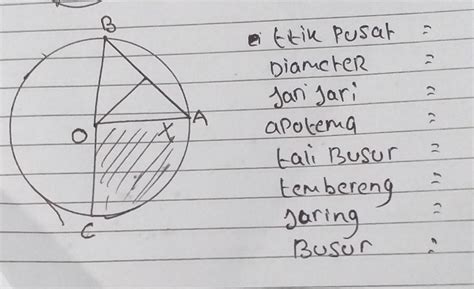 B
A
O
X
C
ttik pusat =
DiameteR =
Jari Jari =
apotema =
tali Busur =
tembereng =
Jaring =
Busur =